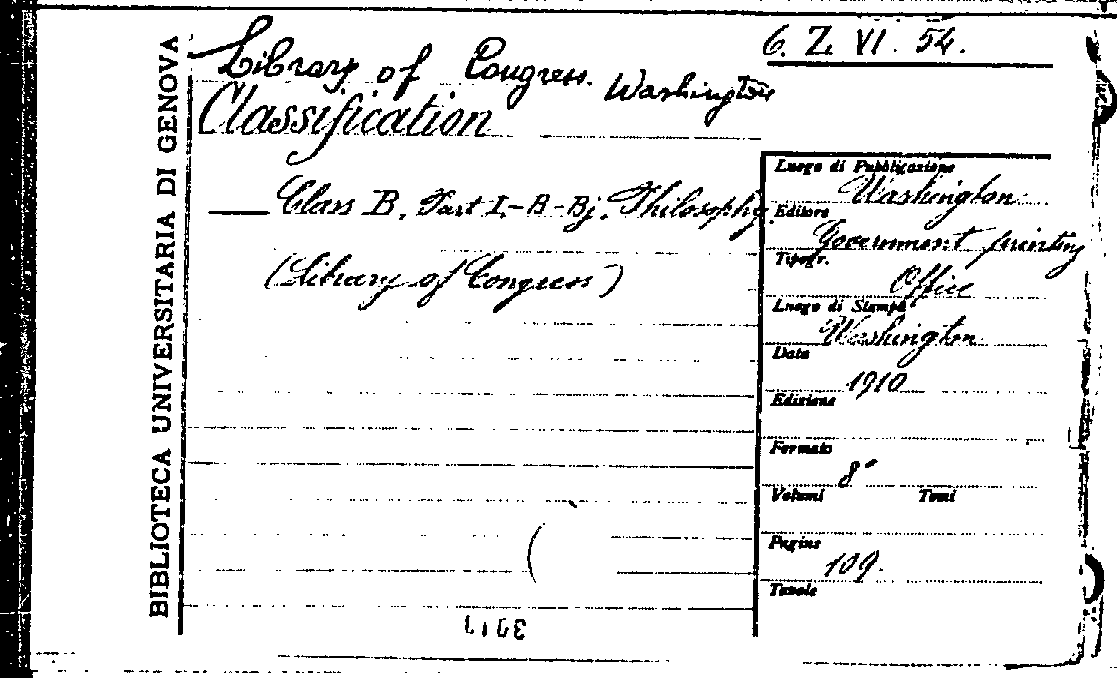 BIBLIOTECA UNIVERSITARIA DI GENOVA
6. Z. VI. 54.
Library of Congress. Washington
Classification
— Class B, Part I, - B - Bj. Philosophy.
(Library of Congress)
Luogo di Pubblicazione
Washington
Editore
Government printing
Tipogr.
Office
Luogo di Stampa
Washington
Data
1910
Edizione
Formato
8°
Volumi Tomi
Pagine
109.
Tavole